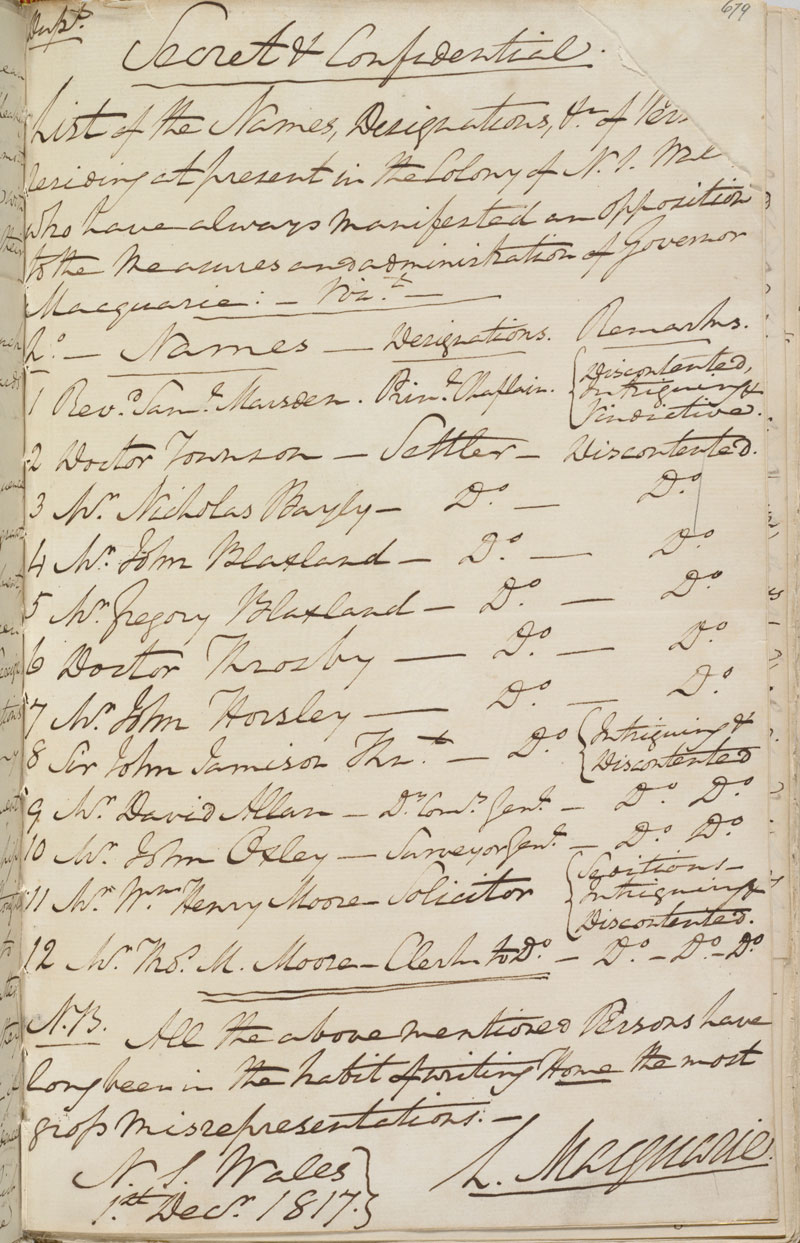 679
Dupt.
Secret & Confidential.
List of the Names, Designations, &c. of
residing at present in the Colony of N. S.
who have always manifested an opposition
to the Measures and administration of Governor
Macquarie: — Vizt. —
No. — Names — Designations. Remarks.
1 Revd. Saml. Marsden. Prinl. Chaplain. { Discontented,
Intriguing &
Vindictive.
2 Doctor Townson — Settler — Discontented.
3 Mr. Nicholas Bayly — Do. — Do.
4 Mr. John Blaxland — Do. — Do.
5 Mr. Gregory Blaxland — Do. — Do.
6 Doctor Throsby — Do. — Do.
7 Mr. John Horsley — Do. — Do.
8 Sir John Jamison Knt. — Do. { Intriguing &
Discontented
9 Mr. David Allan — Dy. Comy. Genl. — Do. Do.
10 Mr. John Oxley — Surveyor Genl. — Do. Do.
11 Mr. Wm. Henry Moore — Solicitor { Seditious —
Intriguing &
Discontented.
12 Mr. Thos. M. Moore — Clerk to Do. — Do. — Do. — Do.
N.B. All the above mentioned Persons have
long been in the habit of writing Home the most
gross misrepresentations. —
N. S. Wales }
1st. Decr. 1817. }
L. Macquarie.